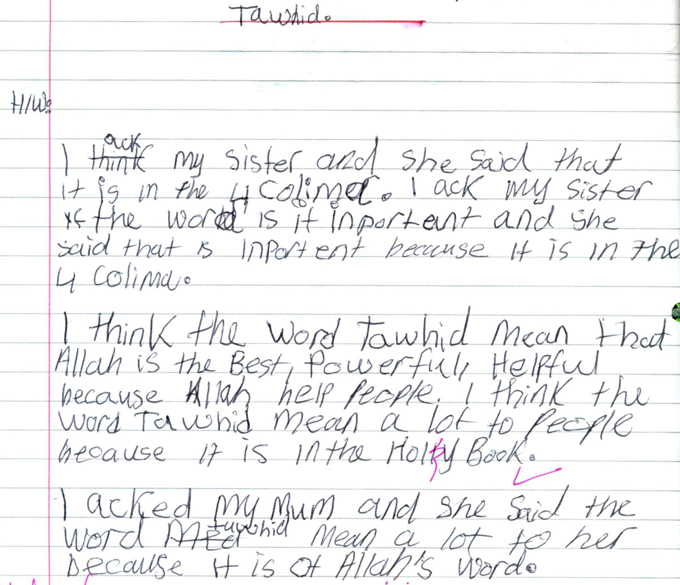 Tawhid.
H/W:
ack
I think my sister and she said that
it is in the 4 Colima. I ack my sister
if the word is it inportent and she
said that is inportent because it is in the
4 Colima.
I think the word Tawhid mean that
Allah is the Best, Powerful, Helpful
because Allah help People. I think the
word Tawhid mean a lot to People
because it is in the Holy Book.
I acked my Mum and she said the
word tawhid mean a lot to her
because it is of Allah's word.